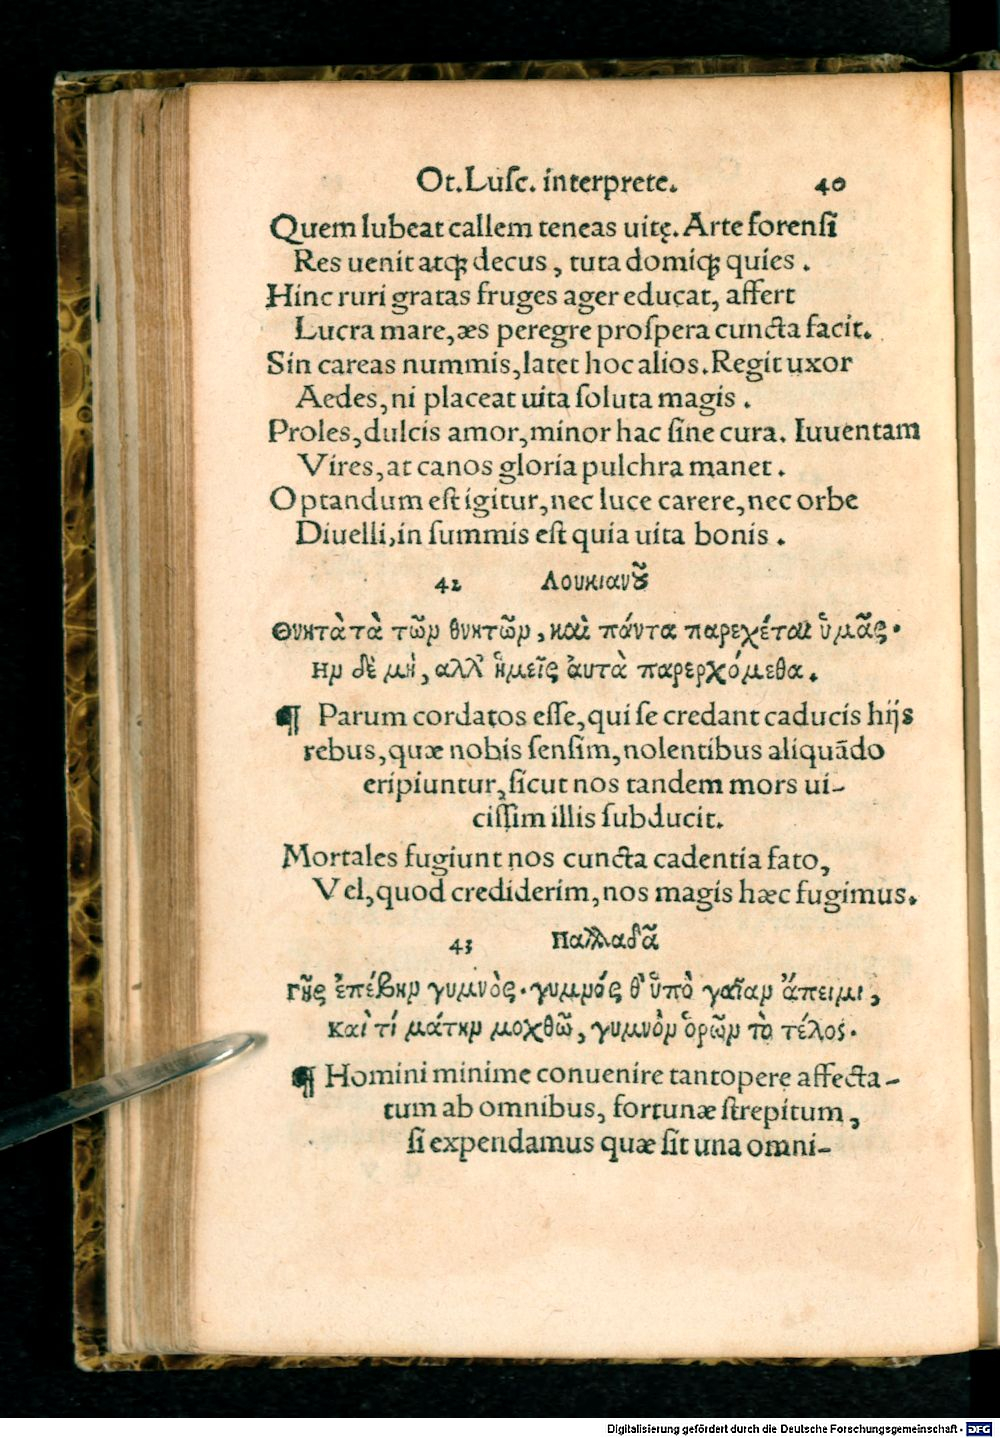 Ot. Lusc. interprete. 40
Quem lubeat callem teneas uitę. Arte forensi
Res uenit atq; decus, tuta domiq; quies.
Hinc ruri gratas fruges ager educat, affert
Lucra mare, æs peregre prospera cuncta facit.
Sin careas nummis, latet hoc alios. Regit uxor
Aedes, ni placeat uita soluta magis.
Proles, dulcis amor, minor hac sine cura. Iuuentam
Vires, at canos gloria pulchra manet.
Optandum est igitur, nec luce carere, nec orbe
Diuelli, in summis est quia uita bonis.
42 Λουκιανοῦ
Θνητὰ τὰ τῶν θνητῶν, καὶ πάντα παρεχέται ὑμᾶς.
Ην δὲ μὴ, αλλ' ἡμεῖς ἀυτὰ παρερχόμεθα.
¶ Parum cordatos esse, qui se credant caducis hijs
rebus, quæ nobis sensim, nolentibus aliquādo
eripiuntur, sicut nos tandem mors ui-
cissim illis subducit.
Mortales fugiunt nos cuncta cadentia fato,
Vel, quod crediderim, nos magis hæc fugimus.
43 Παλλαδᾶ
Γῆς ἐπέβην γυμνὸς. γυμνός θ' ὑπὸ γαῖαν ἄπειμι,
Καὶ τί μάτην μοχθῶ, γυμνὸν ὁρῶν τὸ τέλος.
¶ Homini minime conuenire tantopere affecta-
tum ab omnibus, fortunæ strepitum,
si expendamus quæ sit una omni-
Digitalisierung gefördert durch die Deutsche Forschungsgemeinschaft - DFG